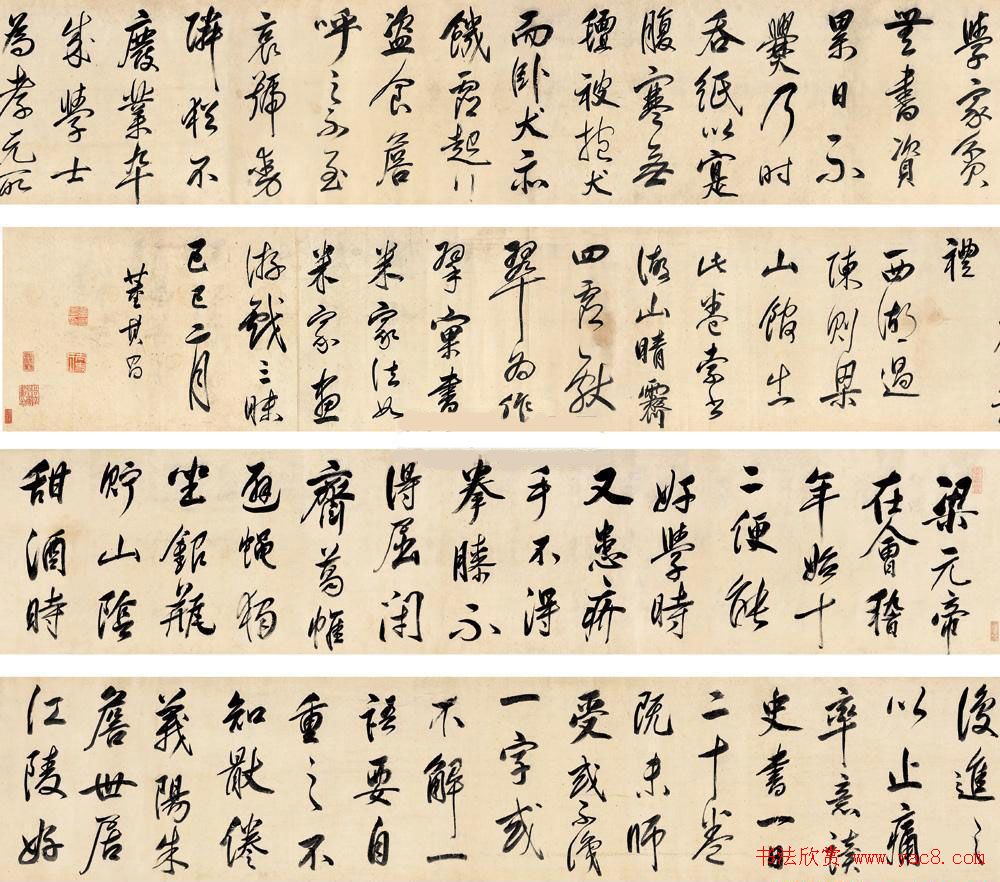 學家貧
無書資
累日不
爨乃时
吞紙以寔
腹寒無
氊被抱犬
而卧犬亦
饑虛起行
盜食詹
呼之不至
哀號動
隣猶不
廢業卒
成學士
為孝元所
禮
西湖過
陳則梁
山館出
此卷索書
湖山晴霽
四虛獻
翠為作
擘窠書
米家法如
米家畫
游戲三昧
己巳二月
董其昌
梁元帝
在會稽
年始十
二便能
好學時
又患疥
手不得
拳膝不
得屈閉
齋葛幃
避蠅獨
坐銀甌
貯山陰
甜酒時
復進之
以止痛
率意讀
史書一日
二十卷
既未師
受或不識
一字或
不解一
語要自
重之不
知厭倦
義陽朱
詹世居
江陵好
书法欣赏 www.yac8.com